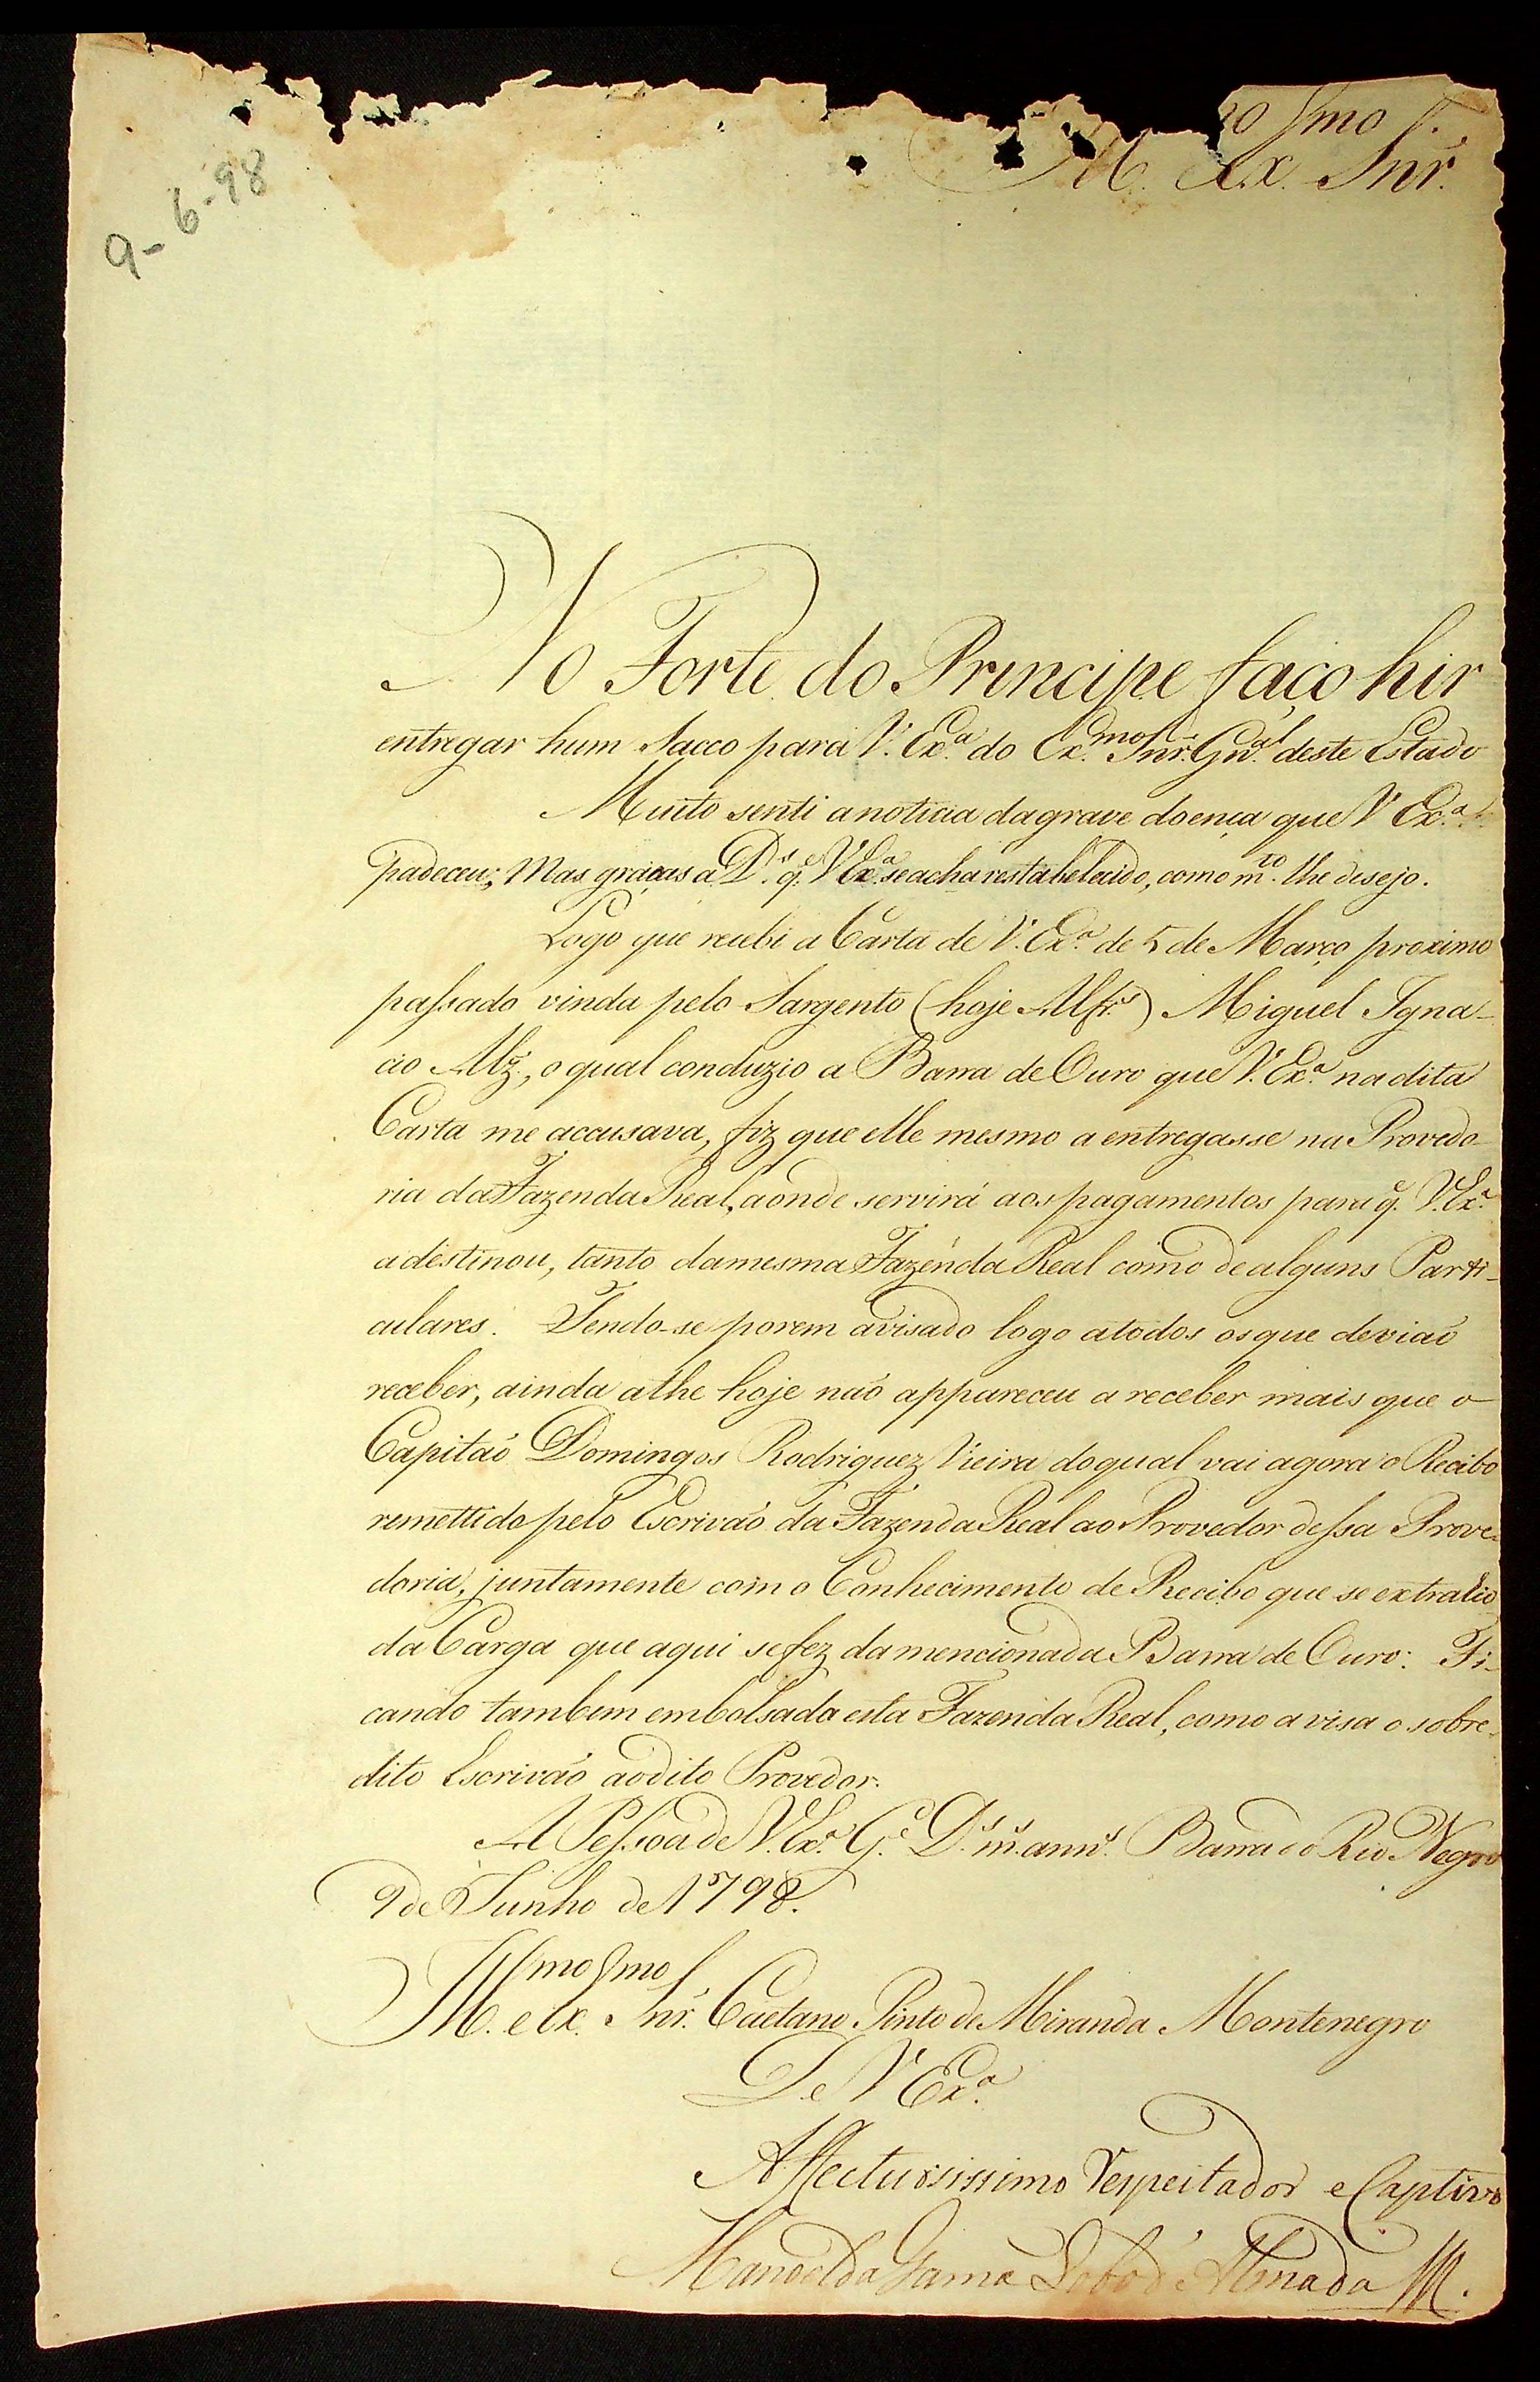 9-6-98
mo Snr.
No Forte do Principe faço hir
entregar hum Sacco para V. Exa. do Exmo. Snr. Gnal. deste Estado
Muito senti a noticia da grave doença que V Exa.
padeceu; Mas graças a Ds. qe. V Exa. se acha restabelecido, como mto. lhe desejo.
Logo que recebi a Carta de V. Exa. de 5 de Março proximo
passado vinda pelo Sargento (hoje Alfes.) Miguel Igna-
cio Alz., o qual conduzio a Barra de Ouro que V. Exa. na dita
Carta me accusava, fiz que elle mesmo a entregasse na Provedo-
ria da Fazenda Real, aonde servirá aos pagamentos para qe. V. Exa.
a destinou, tanto da mesma Fazenda Real como de alguns Parti-
culares. Tendo-se porem avisado logo a todos os que devião
receber, ainda athe hoje não appareceu a receber mais que o
Capitão Domingos Rodriguez Vieira do qual vai agora o Recibo
remettido pelo Escrivão da Fazenda Real ao Provedor dessa Prove-
doria, juntamente com o Conhecimento de Recibo que se extrahio
da Carga que aqui se fez da mencionada Barra de Ouro: Fi-
cando tambem embolsada esta Fazenda Real, como avisa o sobre-
dito Escrivão ao dito Provedor.
A Pessoa de V. Exa. Ge. Ds. ms. anns. Barra do Rio Negro
9 de Junho de 1798.
Illmo. e Exmo. Snr. Caetano Pinto de Miranda Montenegro
De V Exa.
Affectuosissimo Respeitador e Captivo
Manoel da Gama Lobo d'Almada